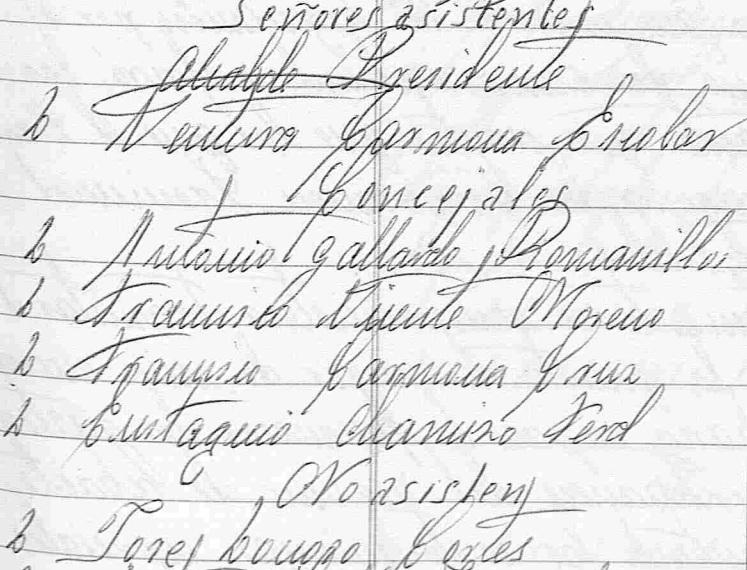 Señores asistentes
Alcalde Presidente
D Ventura Carmona Escobar
Concejales
D Antonio Gallardo Romanillos
D Francisco Vicente Moreno
D Francisco Carmona Cruz
D Eustaquio Chamizo
No asisten
D Cortes